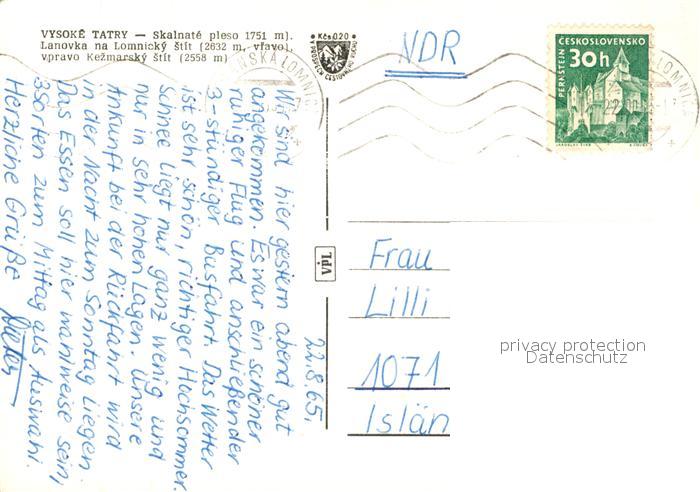 VYSOKÉ TATRY — Skalnaté pleso 1751 m).
Lanovka na Lomnický štít (2632 m, vľavo),
vpravo Kežmarský štít (2558 m)
Kčs 0,20
NDR
ČESKOSLOVENSKO
PERNŠTEJN
30h
22.8.65.
Wir sind hier gestern abend gut
angekommen. Es war ein schöner
ruhiger Flug und anschließender
3-stündiger Busfahrt. Das Wetter
ist sehr schön, richtiger Hochsommer.
Schnee liegt nur ganz wenig und
nur in sehr hohen Lagen. Unsere
Ankunft bei der Rückfahrt wird
in der Nacht zum Sonntag liegen.
Das Essen soll hier wahlweise sein,
3 Sorten zum Mittag als Auswahl.
Herzliche Grüße Dieter
VpL
Frau
Lilli
1071
Islän
privacy protection
Datenschutz